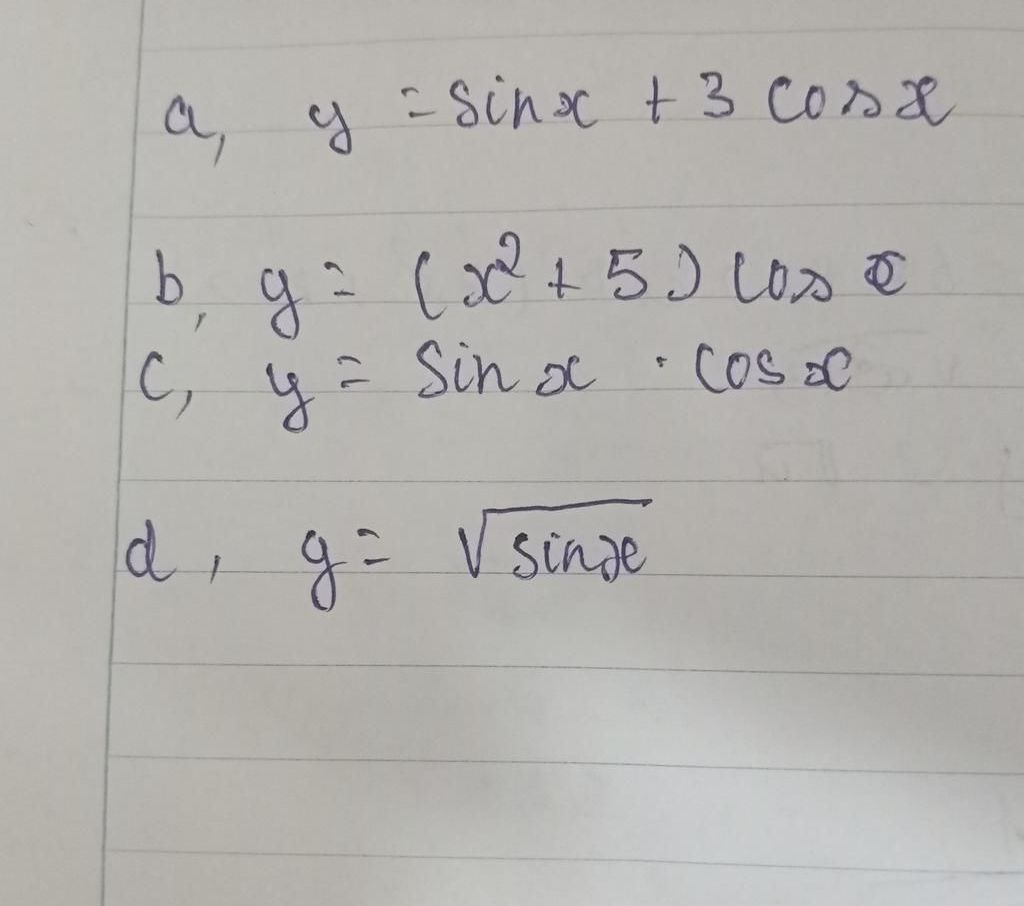 a, y = sinx + 3 cosx
b, y = (x² + 5) cos x
c, y = sin x · cos x
d, y = √sinx